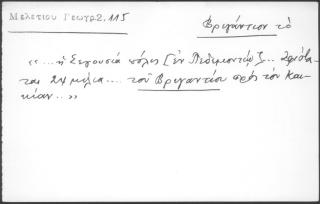 Μελετίου Γεωγρ. 2. 115
Βριγάντιον τὸ
«... ἡ Σεγουσία πόλις [ἐν Πεδεμοντίῳ]...
ται 24 μίλια.... τοῦ Βριγαντίου πρὸς τὸν Και-
κίαν...»